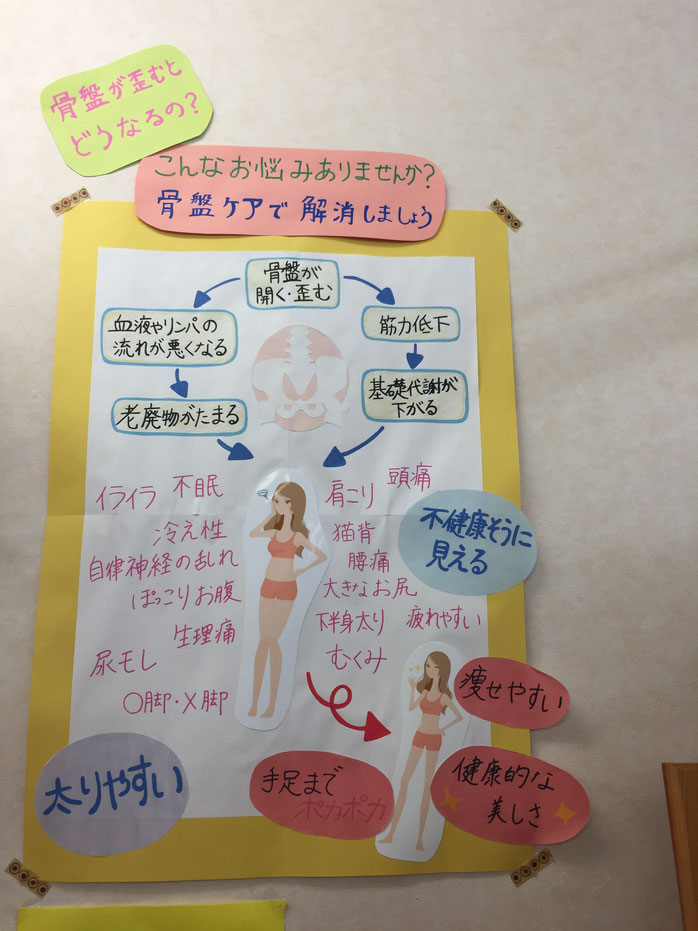 骨盤が歪むと
どうなるの?
こんなお悩みありませんか?
骨盤ケアで解消しましょう
骨盤が
開く・歪む
血液やリンパの
流れが悪くなる
老廃物がたまる
筋力低下
基礎代謝が
下がる
イライラ 不眠
冷え性
自律神経の乱れ
ぽっこりお腹
生理痛
尿モレ
〇脚・X脚
肩こり 頭痛
猫背
腰痛
大きなお尻
下半身太り 疲れやすい
むくみ
不健康そうに
見える
太りやすい
手足まで
ポカポカ
痩せやすい
健康的な
美しさ